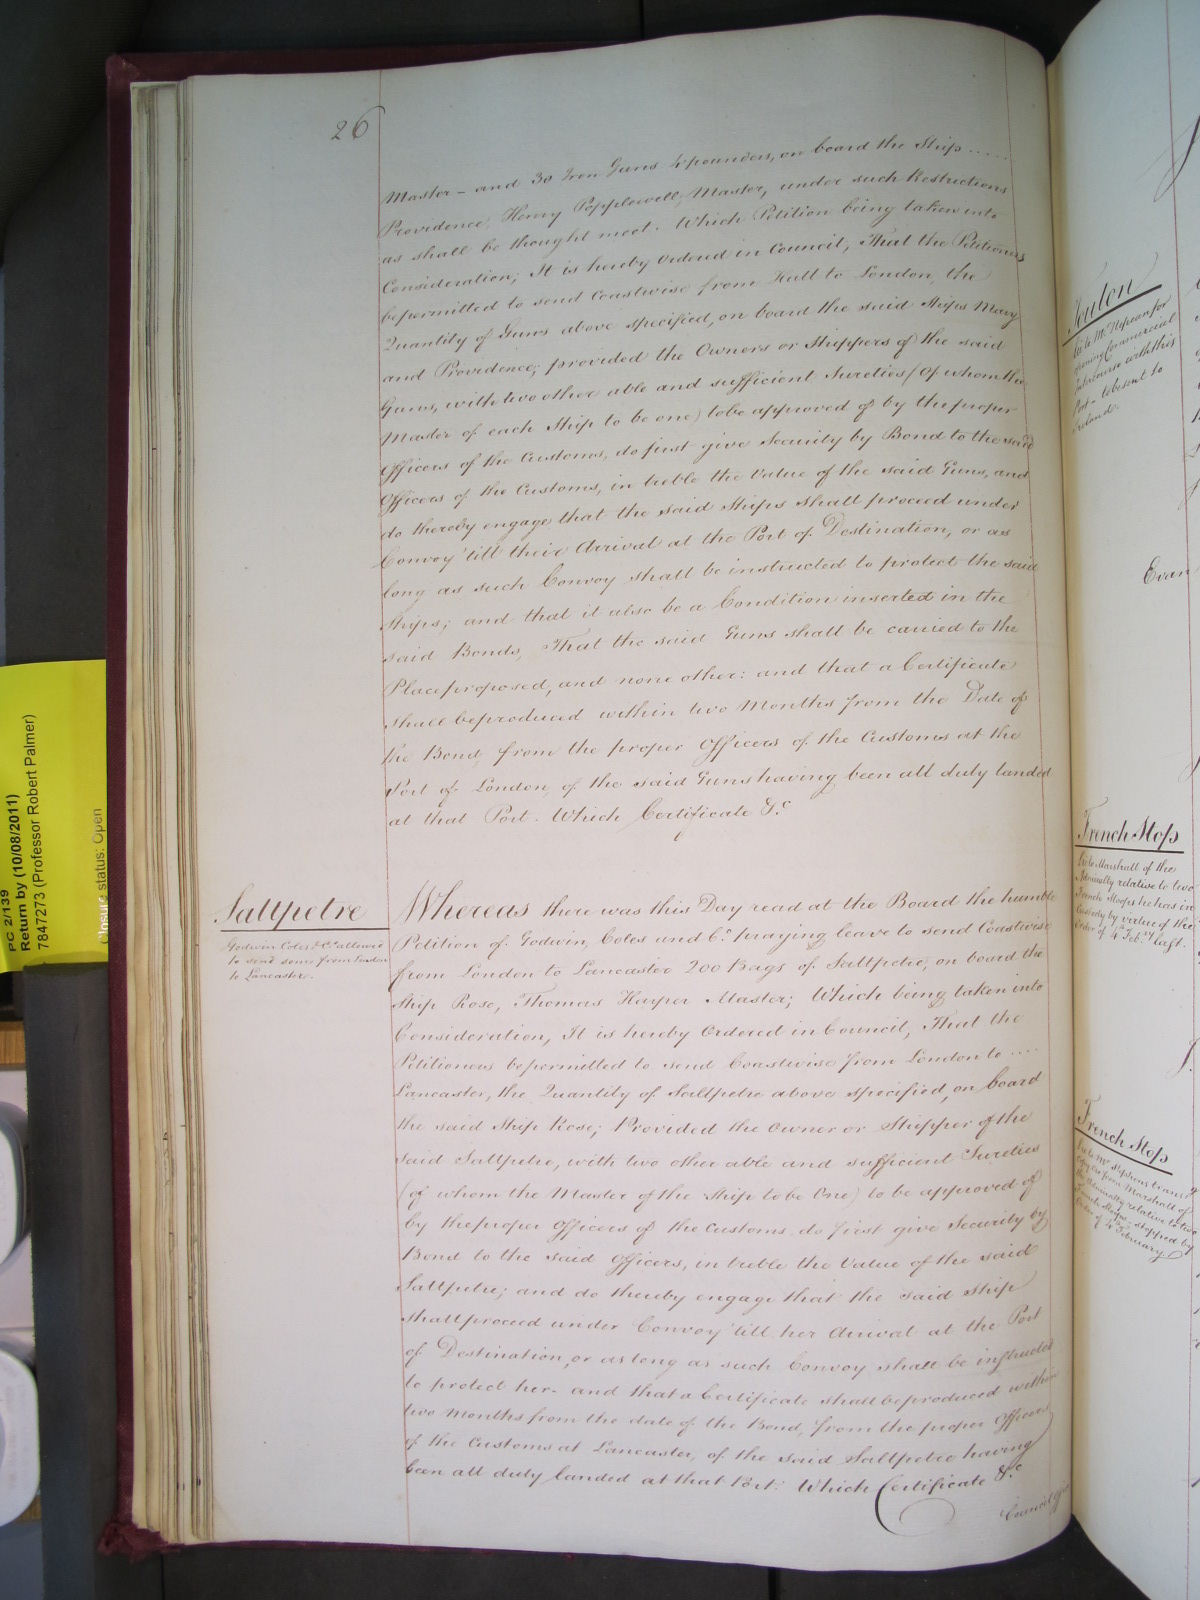 26
Master - and 30 Iron Guns 4 pounders, on board the Ship .....
Providence, Henry Popplewell, Master, under such Restrictions
as shall be thought meet. Which Petition being taken into
Consideration; It is hereby Ordered in Council, That the Petitioners
bepermitted to send Coastwise from Hull to London, the
Quantity of Guns above specified, on board the said Ships Mary
and Providence; provided the Owners or Shippers of the said
Guns, with two other able and sufficient Sureties (Of whom the
Master of each Ship to be one) tobe approved of by the proper
Officers of the Customs, do first give Security by Bond to the said
Officers of the Customs, in treble the Value of the said Guns, and
do thereby engage that the said Ships shall proceed under
Convoy 'till their Arrival at the Port of Destination, or as
long as such Convoy shall be instructed to protect the said
Ships; and that it also be a Condition inserted in the
said Bonds, That the said Guns shall be carried to the
Place proposed, and none other: and that a Certificate
shall be produced within two Months from the Date of
the Bond, from the proper Officers of the Customs at the
Port of London, of the said Guns having been all duly landed
at that Port. Which Certificate &c
Saltpetre
Godwin Coles & Co allowed
to send some from London
to Lancaster.
Whereas there was this Day read at the Board the humble
Petition of Godwin, Coles and Co. praying leave to send Coastwise
from London to Lancaster 200 Bags of Saltpetre, on board the
Ship Rose, Thomas Harper Master; Which being taken into
Consideration, It is hereby Ordered in Council, That the
Petitioners bepermitted to send Coastwise from London to ....
Lancaster, the Quantity of Saltpetre above specified, on board
the said Ship Rose; Provided the Owner or Shipper of the
said Saltpetre, with two other able and sufficient Sureties
(of whom the Master of the Ship to be One) to be approved of
by the proper Officers of the Customs, do first give Security by
Bond to the said Officers, in treble the Value of the said
Saltpetre; and do thereby engage that the said Ship
shall proceed under Convoy 'till her Arrival at the Port
of Destination, or as long as such Convoy shall be instructed
to protect her - and that a Certificate shall be produced within
two Months from the date of the Bond, from the proper Officers
of the Customs at Lancaster, of the said Saltpetre having
been all duly landed at that Port: Which Certificate &c
Council
PC 2/139
Return by (10/08/2011)
7847273 (Professor Robert Palmer)
Closure status: Open
Toulon
Mr Nepean for
opening Commercial
Intercourse with this
Port - to be sent to
Ireland.
Evan
French Ships
Marshall of the
Admiralty relative to two
French Ships he has in
Custody by virtue of the
Order of 4th Feby last.
French Ships
Mr Stephens trans
from Marshall of
the Admiralty relative to two
French Ships stopped by
Order of 4th February